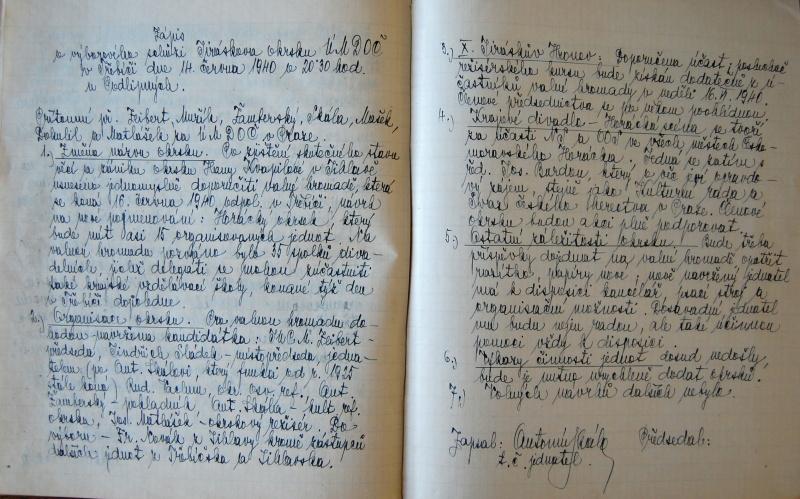 Zápis
o výborového schůzi Jiráskova okrsku ÚMDOČ
v Třebíči dne 14. června 1940 o 20'30 hod.
u Podlipných.
Přítomni př. Zeibert, Muřák, Žamberský, Skála, Mašek,
Dokulil a Matlášek za ÚMDOČ v Praze.
1.) Změna názvu okrsku. Po zjištění skutečného stavu
věcí a zániku okrsku Hany Kvapilové v Jihlavě
usneseno jednomyslně doporučiti valné hromadě, která
se koná 16. června 1940 odpol. v Třebíči návrh
na nové pojmenování: Horácký okrsek, který
bude mít asi 15 organisovaných jednot. Na
valnou hromadu pozváno bylo 35 spolků diva-
delních, jejíž delegáti se mohou zúčastniti
také krajské vzdělávací školy, konané týž den
v Třebíči dopoledne.
2.) Organisace okrsku. Pro valnou hromadu do-
hodou navržena kandidátka: Zeibert-
předseda, Jindřich Sládek - místopředseda, jedna-
telem (po Ant. Skálovi, který funkci od r. 1925
stále koná) Rud. okr. osv. ref., Ant.
Žamberský - pokladník, Ant. Skála - kult. ref.
okrsku, Jos. Matlášek - okrskový režisér. Do
výboru - Fr. Novák z Jihlavy kromě zástupců
dalších jednot z Třebíčska a Jihlavska.
3.) X. Jiráskův Hronov: Doporučena účast; posluchač
režisérského kursu bude získán dodatečně z ú-
častníků valné hromady v neděli 16. VI. 1940.
Členové předsednictva se po něm poohlédnou.
4.) Krajové divadlo - Horácká scéna se tvoří
za účasti NS a OOS ve všech městech Česko-
moravského Horácka. Jedná se zatím s
řed. Jos. Bardou, který o věc jeví opravdo-
vý zájem stejně jako Kulturní rada a
Svaz českého herectva v Praze. Členové
okrsku budou akci plně podporovat.
5.) Ostatní záležitosti okrsku. Bude třeba
příspěvky dojednat na valné hromadě, opatřit
razítko, papíry nové; nově navržený jednatel
má k disposici kancelář, psací stroj a
organisační možnosti. Dosavadní jednatel
mu budu nejen radou, ale také účinnou
pomocí vždy k disposici.
6.) Výkazy činnosti jednot dosud nedošly,
bude je nutno urychleně dodat okrsku.
7.) Volných návrhů dalších nebylo.
Zapsal: Antonín Skála Předsedal:
t. č. jednatel.